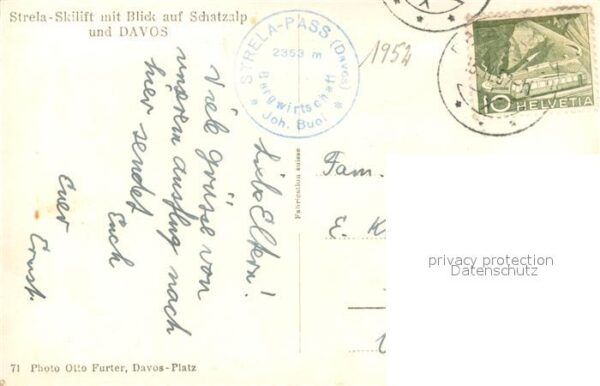 Strela-Skilift mit Blick auf Schatzalp
und DAVOS
STRELA-PASS (Davos)
2353 m
Bergwirtschaft
Joh. Buol
1952
10 HELVETIA
Liebe Eltern!
Viele Grüsse von
unserm Ausflug nach
hier sendet
Euch
Euer
Ernst.
Fabrication suisse
Fam.
E. K
privacy protection
Datenschutz
71 Photo Otto Furter, Davos-Platz